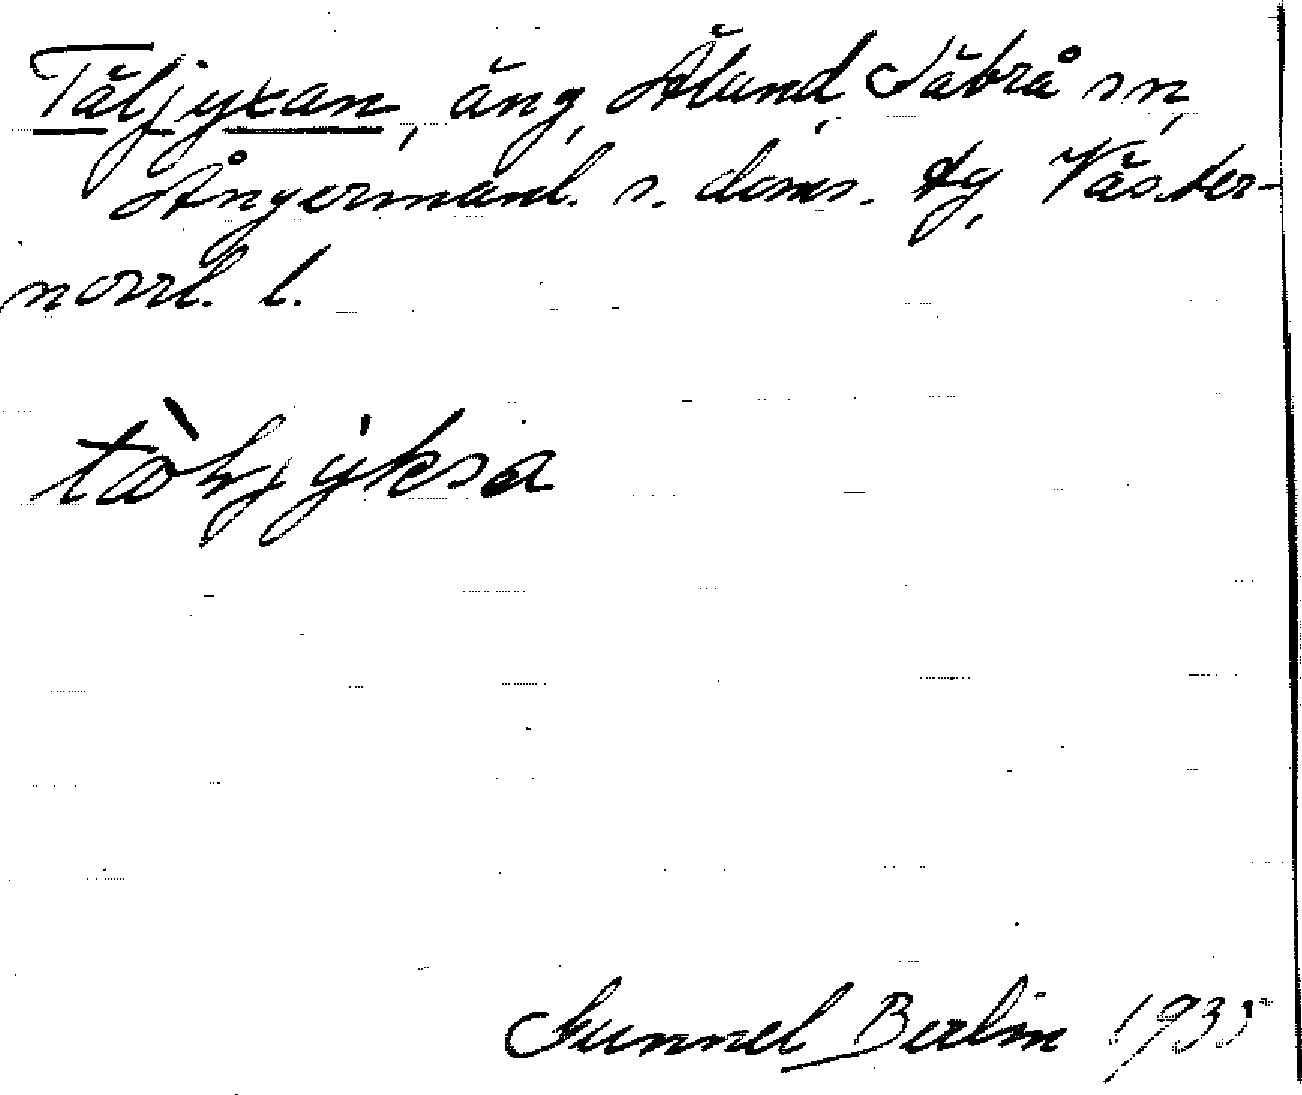 Täljyxan, äng, Älund, Säbrå sn,
Ångermanl. s. doms. tg, Väster-
norrl. l.
Gunnel Berlin 1935